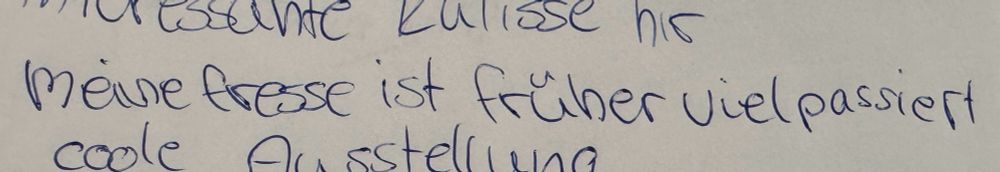 interessante Kulisse hir
Meine fresse ist früher viel passiert
coole Ausstellung